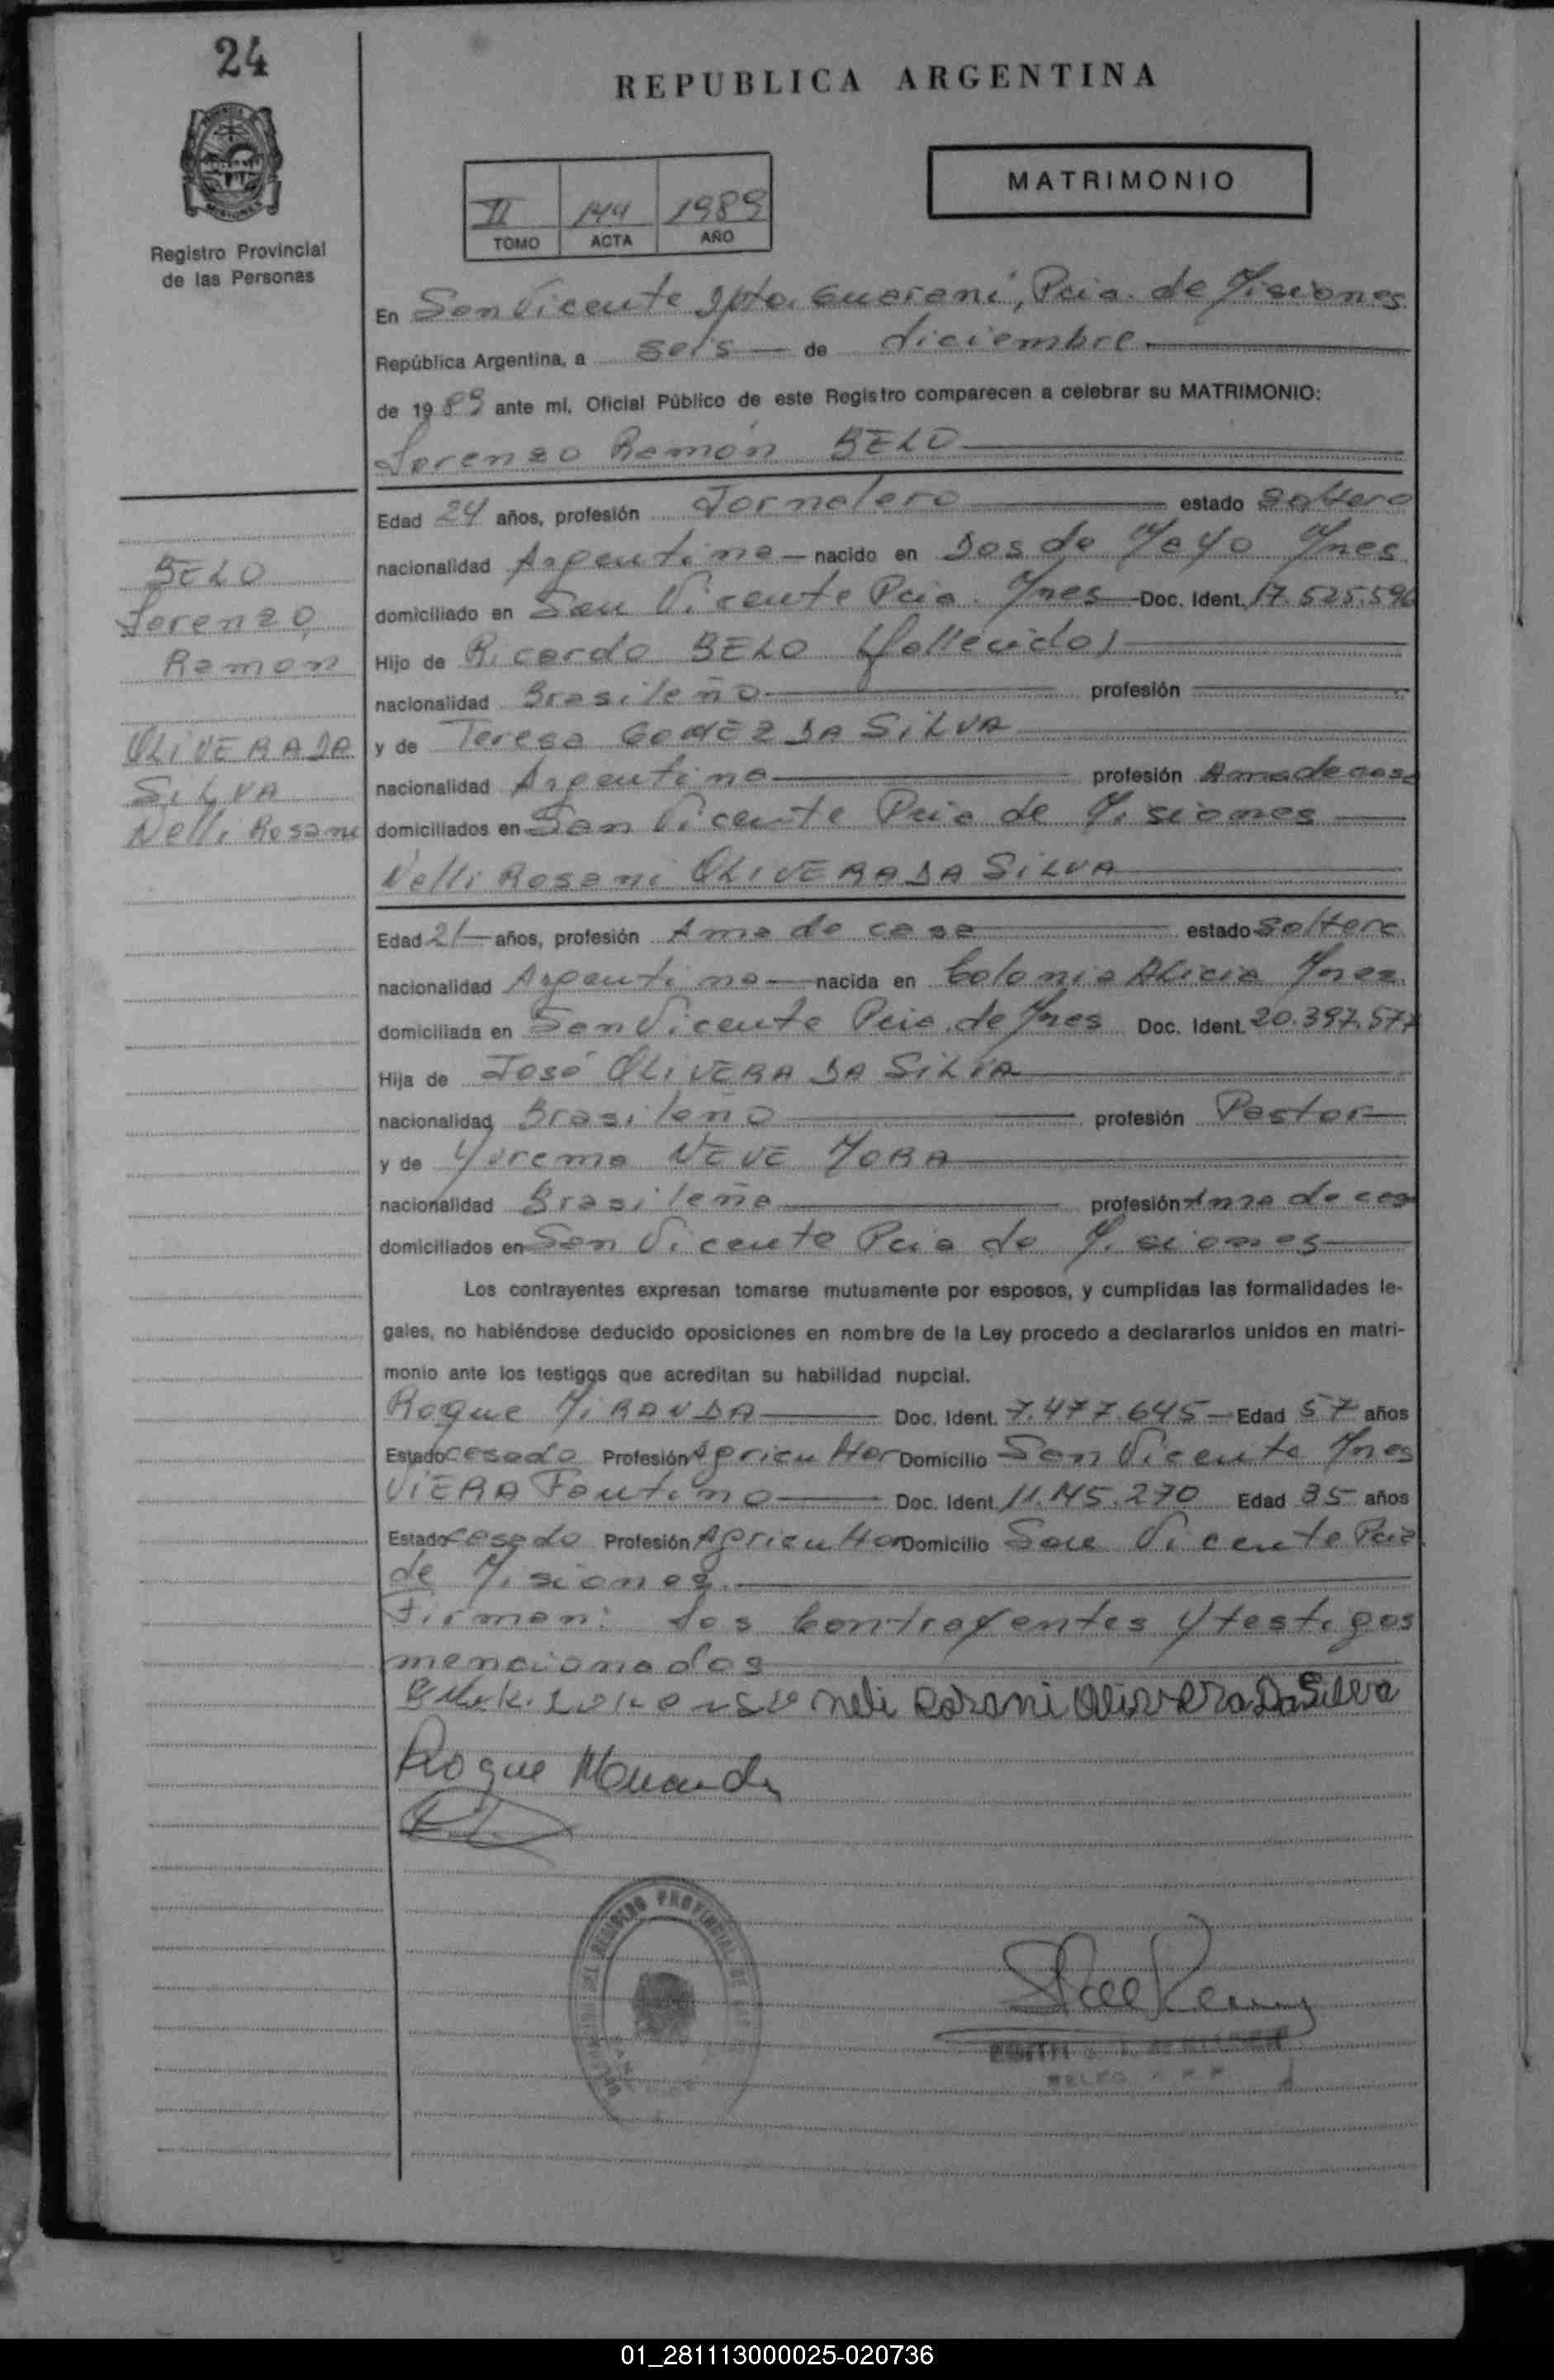 24
REPUBLICA ARGENTINA
MATRIMONIO
II 144 1989
TOMO ACTA AÑO
Registro Provincial
de las Personas
En San Vicente Dpto. Guaraní, Pcia. de Misiones
República Argentina, a seis de diciembre
de 1989 ante mí, Oficial Público de este Registro comparecen a celebrar su MATRIMONIO:
Lorenzo Ramón BELO
Edad 24 años, profesión Jornalero estado soltero
nacionalidad Argentina nacido en Dos de Mayo Mnes
domiciliado en San Vicente Pcia. Mnes Doc. Ident. 17.525.596
Hijo de Ricardo BELO (fallecido)
nacionalidad Brasileño profesión
y de Teresa GOMEZ DA SILVA
nacionalidad Argentina profesión Ama de casa
domiciliados en San Vicente Pcia de Misiones
BELO
Lorenzo
Ramón
OLIVERA DA
SILVA
Nelli Rosani
Nelli Rosani OLIVERA DA SILVA
Edad 21 años, profesión Ama de casa estado soltera
nacionalidad Argentina nacida en Colonia Alicia Mnes
domiciliada en San Vicente Pcia. de Mnes Doc. Ident. 20.397.577
Hija de José OLIVERA DA SILVA
nacionalidad Brasileño profesión Pastor
y de Yurema NEVE MORA
nacionalidad Brasileña profesión Ama de casa
domiciliados en San Vicente Pcia de Misiones
Los contrayentes expresan tomarse mutuamente por esposos, y cumplidas las formalidades le-
gales, no habiéndose deducido oposiciones en nombre de la Ley procedo a declararlos unidos en matri-
monio ante los testigos que acreditan su habilidad nupcial.
Roque MIRANDA Doc. Ident. 7.477.645 Edad 57 años
Estado casado Profesión Agricultor Domicilio San Vicente Mnes
VIERA Fontino Doc. Ident. 11.145.270 Edad 35 años
Estado casado Profesión Agricultor Domicilio San Vicente Pcia
de Misiones
Firman: Los Contrayentes y testigos
mencionados
neli Rosani Olivera Da Silva
Roque
REGISTRO PROVINCIAL DE
EDITH
01_281113000025-020736